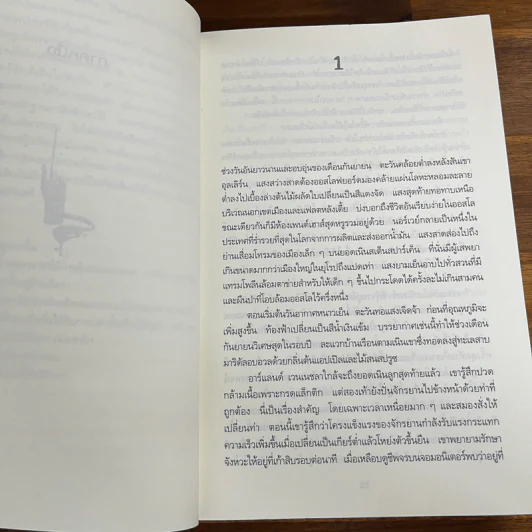 1
ช่วงวันอันยาวนานและอบอุ่นของเดือนกันยายน ตะวันคล้อยต่ำลงหลังสันเขา
อุลเลิร์น แสงสว่างสาดต้องออสโลฟยอร์ดมองคล้ายแผ่นโลหะหลอมละลาย
ต่ำลงไปเบื้องล่างต้นไม้ผลัดใบเปลี่ยนเป็นสีแดงจัด แสงสุดท้ายทอทาบเหนือ
บริเวณนอกเขตเมืองและแฟลตหลังเตี้ย บ่งบอกถึงชีวิตอันเรียบง่ายในออสโล
ขณะเดียวกันก็มีห้องเพนต์เฮาส์สุดหรูรวมอยู่ด้วย นอร์เวย์กลายเป็นหนึ่งใน
ประเทศที่ร่ำรวยที่สุดในโลกจากการผลิตและส่งออกน้ำมัน แสงสาดส่องไปถึง
ย่านเสื่อมโทรมของเมืองเล็ก ๆ บนยอดเนินสเต็นสปาร์เค็น ที่นั่นมีผู้เสพยา
เกินขนาดมากกว่าเมืองใหญ่ในยุโรปถึงแปดเท่า แสงยามเย็นอาบไปทั่วสวนที่มี
แทรมโพลีนล้อมตาข่ายสำหรับให้เด็ก ๆ ขึ้นไปกระโดดได้ครั้งละไม่เกินสามคน
และผืนป่าที่โอบล้อมออสโลไว้ครึ่งหนึ่ง
ตอนเริ่มต้นวันอากาศหนาวเย็น ตะวันทอแสงเจิดจ้า ก่อนที่อุณหภูมิจะ
เพิ่มสูงขึ้น ท้องฟ้าเปลี่ยนเป็นสีน้ำเงินเข้ม บรรยากาศเช่นนี้ทำให้ช่วงเดือน
กันยายนวิเศษสุดในรอบปี ละแวกบ้านเรือนตามเนินเขาซึ่งทอดลงสู่ทะเลสาบ
มาริดัลอบอวลด้วยกลิ่นต้นแอปเปิลและไม้สนสปรูซ
อาร์แลนด์ เวนเนซลาใกล้จะถึงยอดเนินลูกสุดท้ายแล้ว เขารู้สึกปวด
กล้ามเนื้อเพราะกรดแล็กติก แต่สองเท้ายังปั่นจักรยานไปข้างหน้าด้วยท่าที่
ถูกต้อง นี่เป็นเรื่องสำคัญ โดยเฉพาะเวลาเหนื่อยมาก ๆ และสมองสั่งให้
เปลี่ยนท่า ตอนนี้เขารู้สึกว่าโครงแข็งแรงของจักรยานกำลังรับแรงกระแทก
ความเร็วเพิ่มขึ้นเมื่อเปลี่ยนเป็นเกียร์ต่ำแล้วโหย่งตัวขึ้นยืน เขาพยายามรักษา
จังหวะให้อยู่ที่เก้าสิบรอบต่อนาที เมื่อเหลือบดูชีพจรบนจอมอนิเตอร์พบว่าอยู่ที่